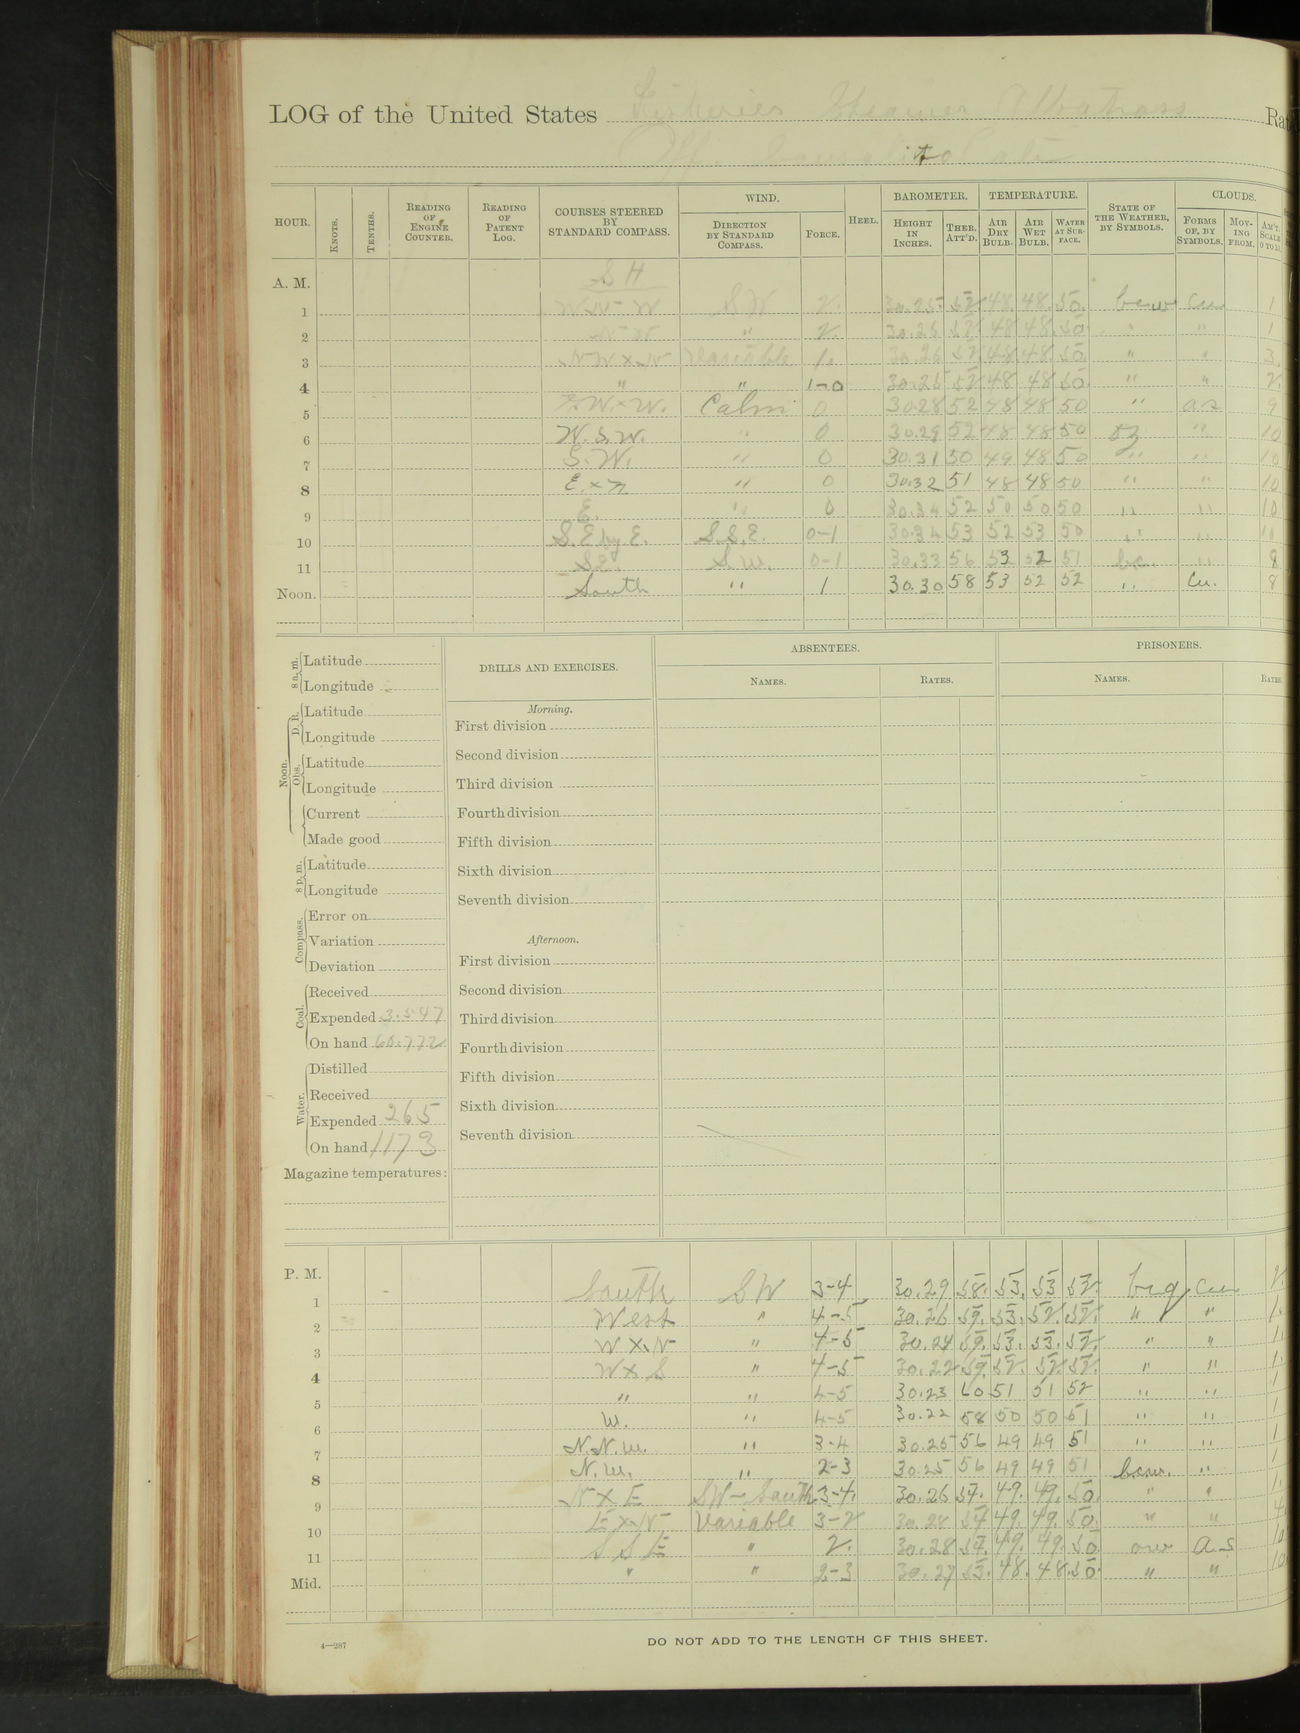 LOG of the United States Fisheries Steamer Albatross Ra
Off Sausalito Cala
HOUR. KNOTS. TENTHS. READING OF ENGINE COUNTER. READING OF PATENT LOG. COURSES STEERED BY STANDARD COMPASS. WIND. DIRECTION BY STANDARD COMPASS. FORCE. HEEL. BAROMETER. HEIGHT IN INCHES. THER. ATT'D. TEMPERATURE. AIR DRY BULB. AIR WET BULB. WATER AT SURFACE. STATE OF THE WEATHER, BY SYMBOLS. CLOUDS. FORMS OF, BY SYMBOLS. MOVING FROM. AM'T. SCALE 0 TO 10.
A. M. S H
1 SW 2. 30.25 52 48 48 50. bcw cu 1
2 " 2. 30.25 52 48 48 50 " " 1
3 NW x W Variable 1. 52 48 48 50 " " 3.
4 " " 1-0 30.25 52 48 48 50. " " 2.
5 Calm 0 30.28 52 48 48 50 " as 9
6 W.S.W. " 0 30.29 52 48 48 50 oz " 10
7 S.W. " 0 30.31 50 49 48 50 " " 10
8 E. x N " 0 30.32 51 48 48 50 " " 10
9 E. " 0 30.34 52 50 50 50 " " 10
10 S.E by E. S.S.E. 0-1 30.34 53 52 53 50 " " 10
11 S.E. S.W. 0-1 30.33 56 53 52 51 bc. " 8
Noon. South " 1 30.30 58 53 52 52 " Cu. 8
8 a.m. Latitude
Longitude
Noon. D. R. Latitude
Longitude
Obs. Latitude
Longitude
Current
Made good
8 p.m. Latitude
Longitude
Compass. Error on
Variation
Deviation
Coal. Received
Expended 3.547
On hand 60.772
Water. Distilled
Received
Expended 265
On hand 1173
Magazine temperatures:
DRILLS AND EXERCISES.
Morning.
First division
Second division
Third division
Fourth division
Fifth division
Sixth division
Seventh division
Afternoon.
First division
Second division
Third division
Fourth division
Fifth division
Sixth division
Seventh division
ABSENTEES.
NAMES. RATES.
PRISONERS.
NAMES. RATES.
P. M.
1 South SW 3-4 30.29 58. 53. 53 52. bcq cu 2.
2 West " 4-5 30.26 59. 53. 52. 52. " " 1.
3 W x N " 4-5 30.24 59. 53. 53. 52. " " 1.
4 W x S " 4-5 30.22 59. 52. 52 52. " " 1.
5 " " 4-5 30.23 60 51 51 52 " " 1
6 W. " 4-5 30.22 58 50 50 51 " " 1
7 N.N.W. " 3-4 30.25 56 49 49 51 " " 1
8 N.W. " 2-3 30.25 56 49 49 51 bcw. " 1
9 N x E SW-South 3-4. 30.26 54. 49. 49. 50. " " 1.
10 E x N Variable 3-2 30.28 54 49. 49. 50. " " 4.
11 S S E " 2. 30.28 54. 49. 49. 50 ow as 10
Mid. " " 2-3 30.27 53. 48. 48. 50. " " 10
4—287
DO NOT ADD TO THE LENGTH OF THIS SHEET.